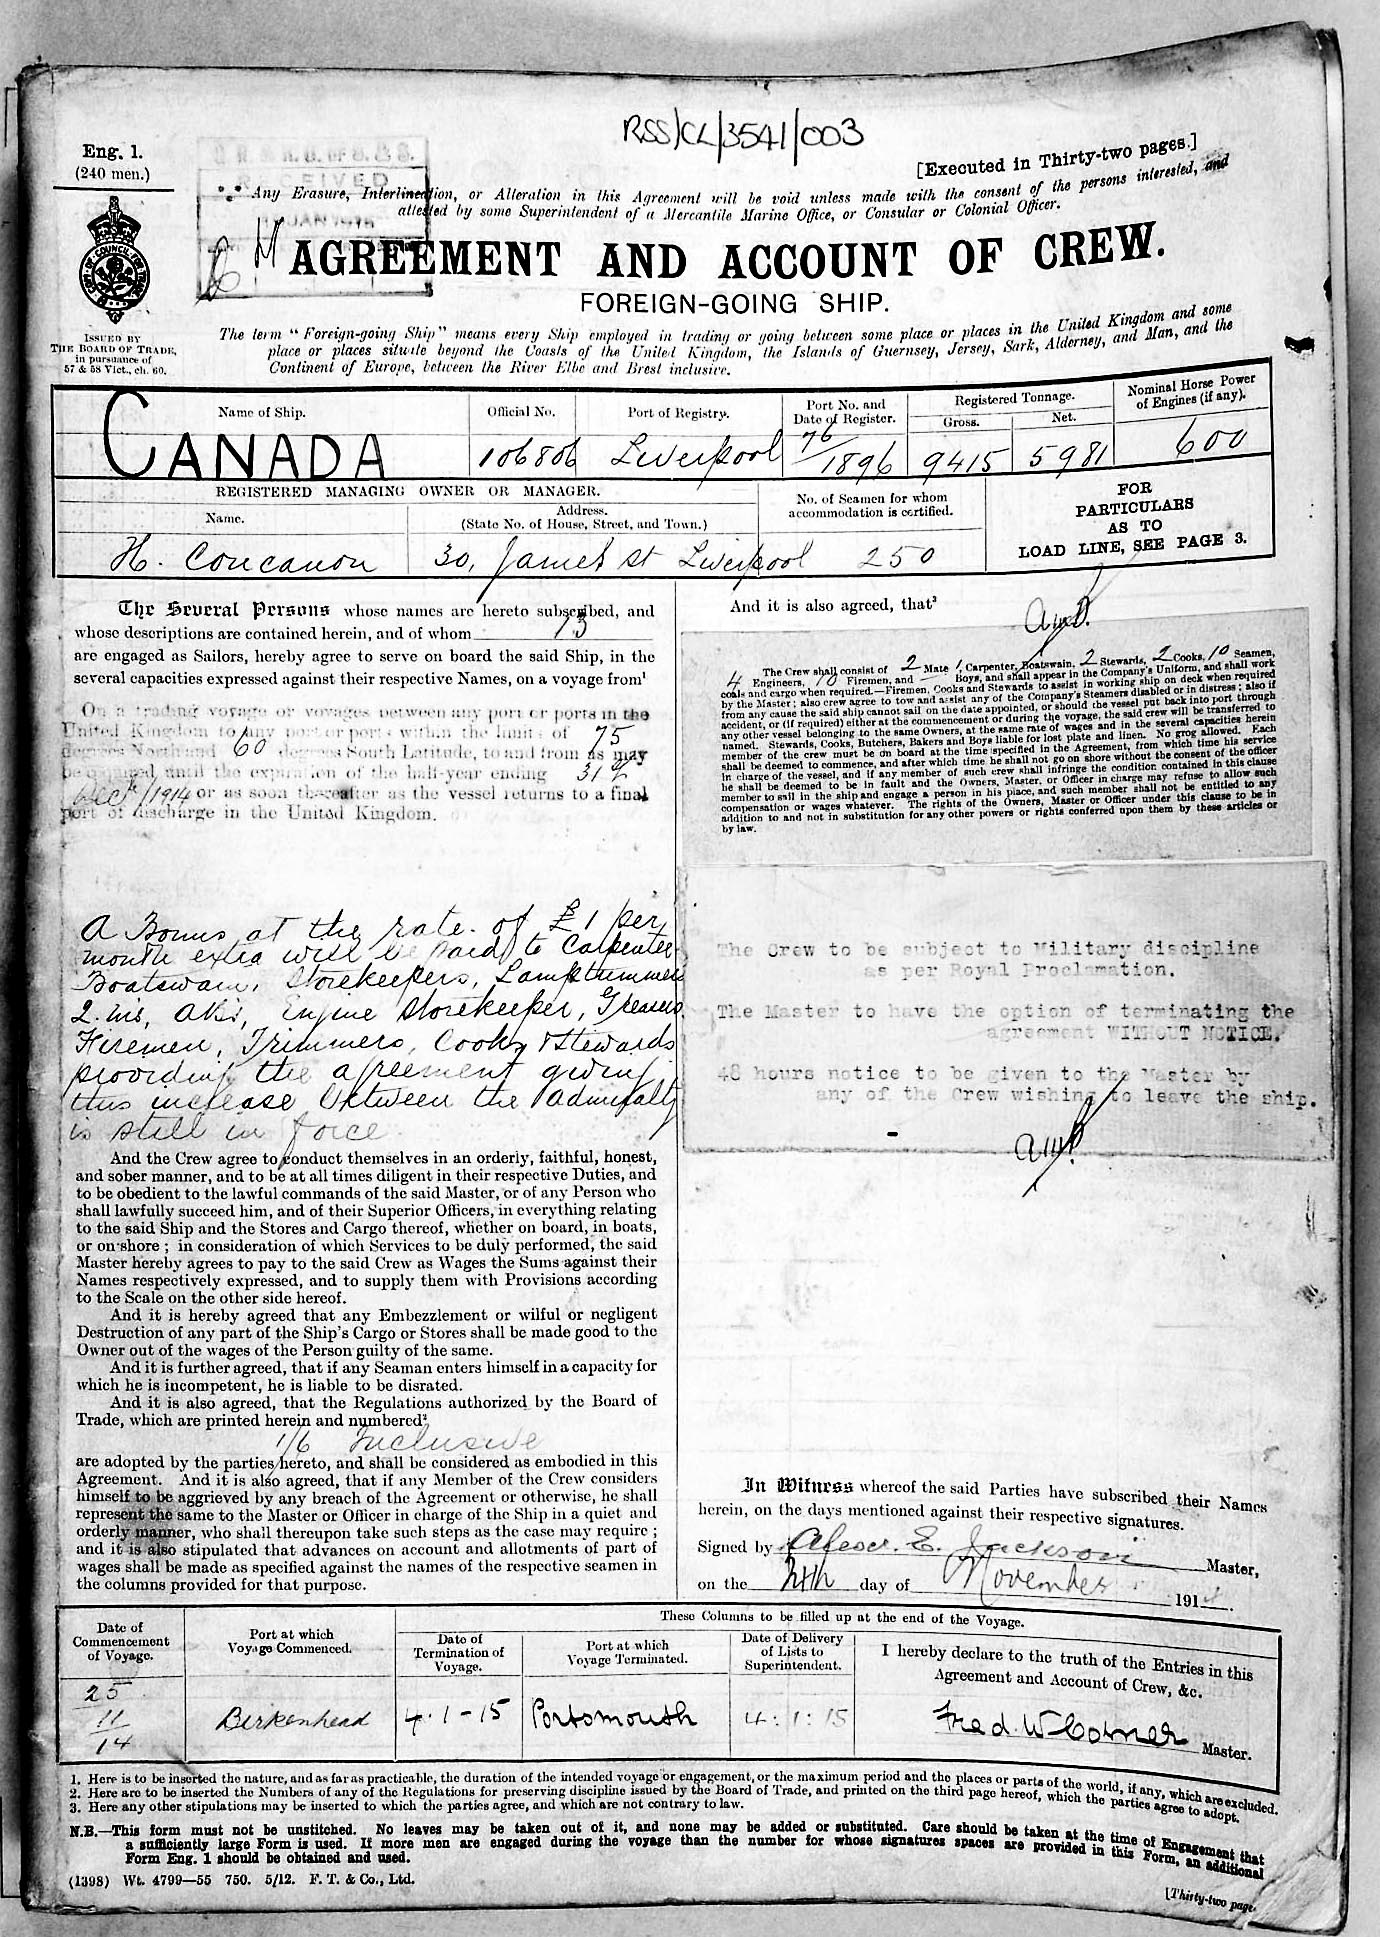 RSS/CL/3541/003
Eng. 1.
(240 men.)
[Executed in Thirty-two pages.]
Any Erasure, Interlineation, or Alteration in this Agreement will be void unless made with the consent of the persons interested, and
attested by some Superintendent of a Mercantile Marine Office, or Consular or Colonial Officer.
AGREEMENT AND ACCOUNT OF CREW.
FOREIGN-GOING SHIP.
ISSUED BY
THE BOARD OF TRADE,
in pursuance of
57 & 58 Vict., ch. 60.
The term "Foreign-going Ship" means every Ship employed in trading or going between some place or places in the United Kingdom and some
place or places situate beyond the Coasts of the United Kingdom, the Islands of Guernsey, Jersey, Sark, Alderney, and Man, and the
Continent of Europe, between the River Elbe and Brest inclusive.
Name of Ship.
Official No.
Port of Registry.
Port No. and
Date of Register.
Registered Tonnage.
Gross.
Net.
Nominal Horse Power
of Engines (if any).
CANADA
106806
Liverpool
76/1896
9415
5981
600
REGISTERED MANAGING OWNER OR MANAGER.
Name.
Address.
(State No. of House, Street, and Town.)
No. of Seamen for whom
accommodation is certified.
FOR
PARTICULARS
AS TO
LOAD LINE, SEE PAGE 3.
H. Concanon
30, James St Liverpool
250
The Several Persons whose names are hereto subscribed, and
whose descriptions are contained herein, and of whom 13
are engaged as Sailors, hereby agree to serve on board the said Ship, in the
several capacities expressed against their respective Names, on a voyage from¹
On a trading voyage or voyages between any port or ports in the
United Kingdom to any port or ports within the limit of 75
degrees North and 60 degrees South Latitude, to and from as may
be required until the expiration of the half-year ending 31st
Decr/1914 or as soon thereafter as the vessel returns to a final
port of discharge in the United Kingdom.
A Bonus at the rate of £1 per
month extra will be paid to Carpenter
Boatswain, Storekeepers, Lamptrimmers
Q. Ms, ABs, Engine Storekeeper, Greasers
Firemen, Trimmers, Cooks & Stewards
providing the agreement giving
this increase between the Admiralty
is still in force
And the Crew agree to conduct themselves in an orderly, faithful, honest,
and sober manner, and to be at all times diligent in their respective Duties, and
to be obedient to the lawful commands of the said Master, or of any Person who
shall lawfully succeed him, and of their Superior Officers, in everything relating
to the said Ship and the Stores and Cargo thereof, whether on board, in boats,
or on shore; in consideration of which Services to be duly performed, the said
Master hereby agrees to pay to the said Crew as Wages the Sums against their
Names respectively expressed, and to supply them with Provisions according
to the Scale on the other side hereof.
And it is hereby agreed that any Embezzlement or wilful or negligent
Destruction of any part of the Ship's Cargo or Stores shall be made good to the
Owner out of the wages of the Person guilty of the same.
And it is further agreed, that if any Seaman enters himself in a capacity for
which he is incompetent, he is liable to be disrated.
And it is also agreed, that the Regulations authorized by the Board of
Trade, which are printed herein and numbered²
1/6 Inclusive
are adopted by the parties hereto, and shall be considered as embodied in this
Agreement. And it is also agreed, that if any Member of the Crew considers
himself to be aggrieved by any breach of the Agreement or otherwise, he shall
represent the same to the Master or Officer in charge of the Ship in a quiet and
orderly manner, who shall thereupon take such steps as the case may require;
and it is also stipulated that advances on account and allotments of part of
wages shall be made as specified against the names of the respective seamen in
the columns provided for that purpose.
And it is also agreed, that³
The Crew shall consist of 2 Mate 1 Carpenter, Boatswain, 2 Stewards, 2 Cooks, 10 Seamen,
4 Engineers, 10 Firemen, and Boys, and shall appear in the Company's Uniform, and shall work
coals and cargo when required.—Firemen, Cooks and Stewards to assist in working ship on deck when required
by the Master; also crew agree to tow and assist any of the Company's Steamers disabled or in distress; also if
from any cause the said ship cannot sail on the date appointed, or should the vessel put back into port through
accident, or (if required) either at the commencement or during the voyage, the said crew will be transferred to
any other vessel belonging to the same Owners, at the same rate of wages and in the several capacities herein
named. Stewards, Cooks, Butchers, Bakers and Boys liable for lost plate and linen. No grog allowed. Each
member of the crew must be on board at the time specified in the Agreement, from which time his service
shall be deemed to commence, and after which time he shall not go on shore without the consent of the officer
in charge of the vessel, and if any member of such crew shall infringe the condition contained in this clause
he shall be deemed to be in fault and the Owners, Master, or Officer in charge may refuse to allow such
member to sail in the ship and engage a person in his place, and such member shall not be entitled to any
compensation or wages whatever. The rights of the Owners, Master or Officer under this clause to be in
addition to and not in substitution for any other powers or rights conferred upon them by these articles or
by law.
The Crew to be subject to Military discipline
as per Royal Proclamation.
The Master to have the option of terminating the
agreement WITHOUT NOTICE.
48 hours notice to be given to the Master by
any of the Crew wishing to leave the ship.
In Witness whereof the said Parties have subscribed their Names
herein, on the days mentioned against their respective signatures.
Signed by Alexr. E. Jackson Master,
on the 24th day of November 1914.
These Columns to be filled up at the end of the Voyage.
Date of
Commencement
of Voyage.
Port at which
Voyage Commenced.
Date of
Termination of
Voyage.
Port at which
Voyage Terminated.
Date of Delivery
of Lists to
Superintendent.
I hereby declare to the truth of the Entries in this
Agreement and Account of Crew, &c.
25
11
14
Birkenhead
4.1-15
Portsmouth
4:1:15
Fred. W. Corner Master.
1. Here is to be inserted the nature, and as far as practicable, the duration of the intended voyage or engagement, or the maximum period and the places or parts of the world, if any, which are excluded.
2. Here are to be inserted the Numbers of any of the Regulations for preserving discipline issued by the Board of Trade, and printed on the third page hereof, which the parties agree to adopt.
3. Here any other stipulations may be inserted to which the parties agree, and which are not contrary to law.
N.B.—This form must not be unstitched. No leaves may be taken out of it, and none may be added or substituted. Care should be taken at the time of Engagement that
a sufficiently large Form is used. If more men are engaged during the voyage than the number for whose signatures spaces are provided in this Form, an additional
Form Eng. 1 should be obtained and used.
(1398) Wt. 4799—55 750. 5/12. F. T. & Co., Ltd.
[Thirty-two page